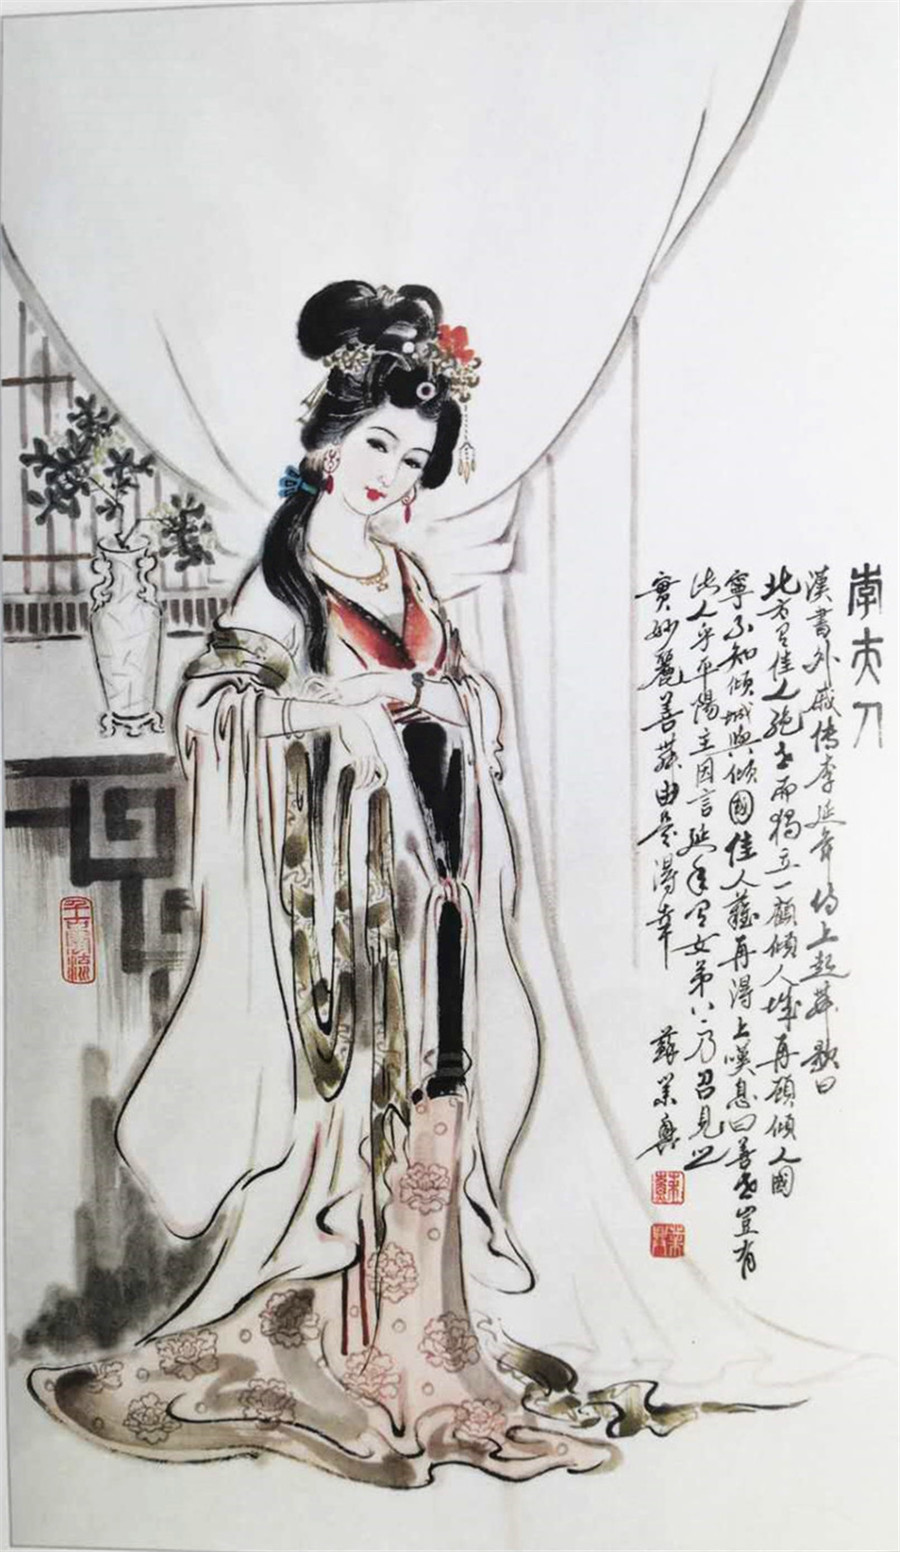 李夫人
漢書外戚傳李延年侍上起舞歌曰
北方有佳人絕世而獨立一顧傾人城再顧傾人國
寧不知傾城與傾國佳人難再得上嘆息曰善世豈有
此人乎平陽主因言延年有女弟上乃召見之
實妙麗善舞由是得幸